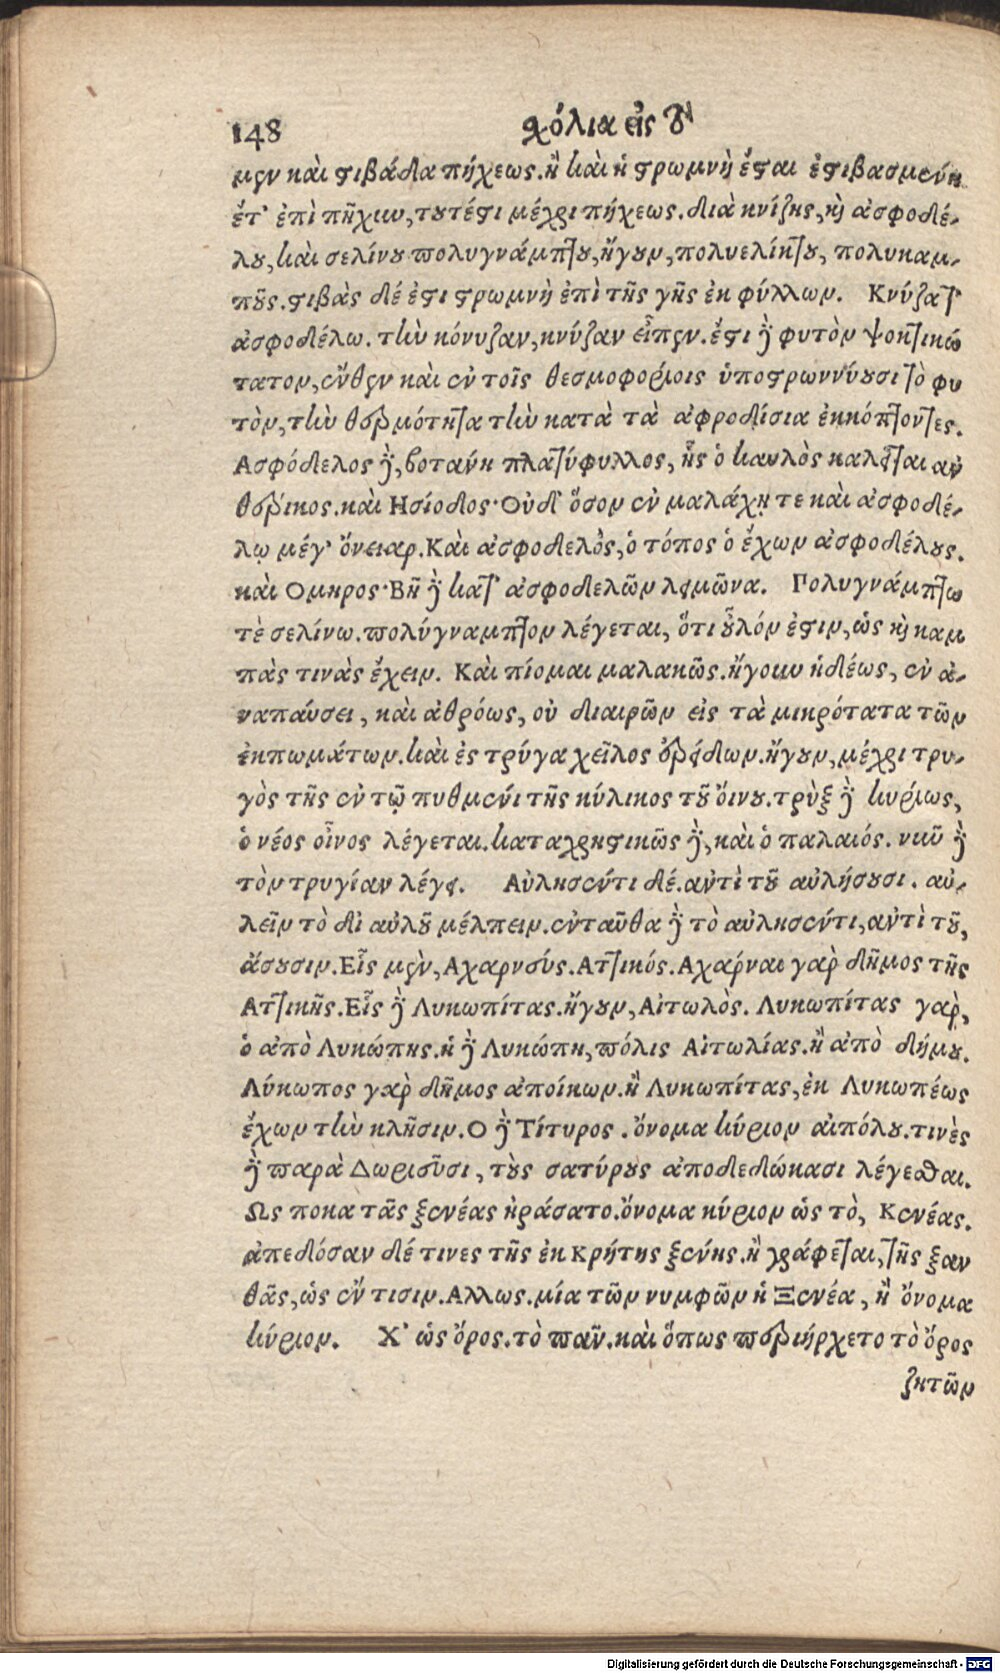 148 σχόλια εἰς τὸν
μεν καὶ στιβάδα πήχεως. ἢ καὶ ἡ στρωμνὴ ἔσται ἐστιβασμένη
ἔστ' ἐπὶ πῆχυν, τουτέστι μέχρι πήχεως. διὰ κνίζης, καὶ ἀσφοδέ-
λου, καὶ σελίνου πολυγνάμπτου, ἤγουν, πολυελίκτου, πολυκαμ-
ποῦς. στιβὰς δέ ἐστι στρωμνὴ ἐπὶ τῆς γῆς ἐκ φύλλων. Κνύζα τ'
ἀσφοδέλω. τὴν κόνυζαν, κνύζαν εἶπεν. ἔστι δὲ φυτὸν ψυκτικώ
τατον, ἔνθεν καὶ ἐν τοῖς θεσμοφορίοις ὑποστρωννύουσι τὸ φυ
τὸν, τὴν θερμότητα τὴν κατὰ τὰ ἀφροδίσια ἐκκόπτοντες.
Ασφόδελος δὲ, βοτάνη πλατύφυλλος, ἧς ὁ καυλὸς καλεῖται ἀν
θέρικος. καὶ Ησίοδος· Οὐδ' ὅσον ἐν μαλάχῃ τε καὶ ἀσφοδέ-
λῳ μέγ' ὄνειαρ. Καὶ ἀσφοδελὸς, ὁ τόπος ὁ ἔχων ἀσφοδέλους.
καὶ Ομηρος· Βῆ δὲ κατ' ἀσφοδελῶν λειμῶνα. Πολυγνάμπτω
τὲ σελίνω. πολύγναμπτον λέγεται, ὅτι οὖλόν ἐστιν, ὡς καὶ καμ
πὰς τινὰς ἔχειν. Καὶ πίομαι μαλακῶς. ἤγουν ἡδέως, ἐν ἀ-
ναπαύσει, καὶ ἀθρόως, οὐ διαιρῶν εἰς τὰ μικρότατα τῶν
ἐκπωμάτων. καὶ ἐς τρύγα χεῖλος ἐρείδων. ἤγουν, μέχρι τρυ-
γὸς τῆς ἐν τῷ πυθμένι τῆς κύλικος τοῦ οἴνου. τρὺξ δὲ κυρίως,
ὁ νέος οἶνος λέγεται. καταχρηστικῶς δὲ, καὶ ὁ παλαιός. νῦν δὲ
τὸν τρυγίαν λέγει. Αὐλησέντι δέ. ἀντὶ τοῦ αὐλήσουσι. αὐ-
λεῖν τὸ δι αὐλοῦ μέλπειν. ἐνταῦθα δὲ τὸ αὐλησέντι, ἀντὶ τοῦ,
ἄσουσιν. Εἷς μὲν, Αχαρνεύς. Αττικός. Αχάρναι γὰρ δῆμος τῆς
Αττικῆς. Εἷς δὲ Λυκωπίτας. ἤγουν, Αἰτωλός. Λυκωπίτας γὰρ,
ὁ ἀπὸ Λυκώπης. ἡ δὲ Λυκώπη, πόλις Αἰτωλίας. ἢ ἀπὸ δήμου.
Λύκωπος γὰρ δῆμος ἀποίκων. ἢ Λυκωπίτας, ἐκ Λυκωπέως
ἔχων τὴν κλῆσιν. Ο δὲ Τίτυρος. ὄνομα κύριον αἰπόλου. τινὲς
δὲ παρὰ Δωριεῦσι, τοὺς σατύρους ἀποδεδώκασι λέγεσθαι.
Ως ποκα τᾶς ξενέας ἠράσατο. ὄνομα κύριον ὡς τὸ, Κενέας.
ἀπεδόσαν δέ τινες τῆς ἐκ Κρήτης ξένης. ἢ γράφεται, τῆς ξαν
θᾶς, ὡς ἔν τισιν. Αλλως. μία τῶν νυμφῶν ἡ Ξενέα, ἢ ὄνομα
κύριον. Χ' ὡς ὄρος. τὸ πᾶν. καὶ ὅπως περιήρχετο τὸ ὄρος
ζητῶν
Digitalisierung gefördert durch die Deutsche Forschungsgemeinschaft - DFG